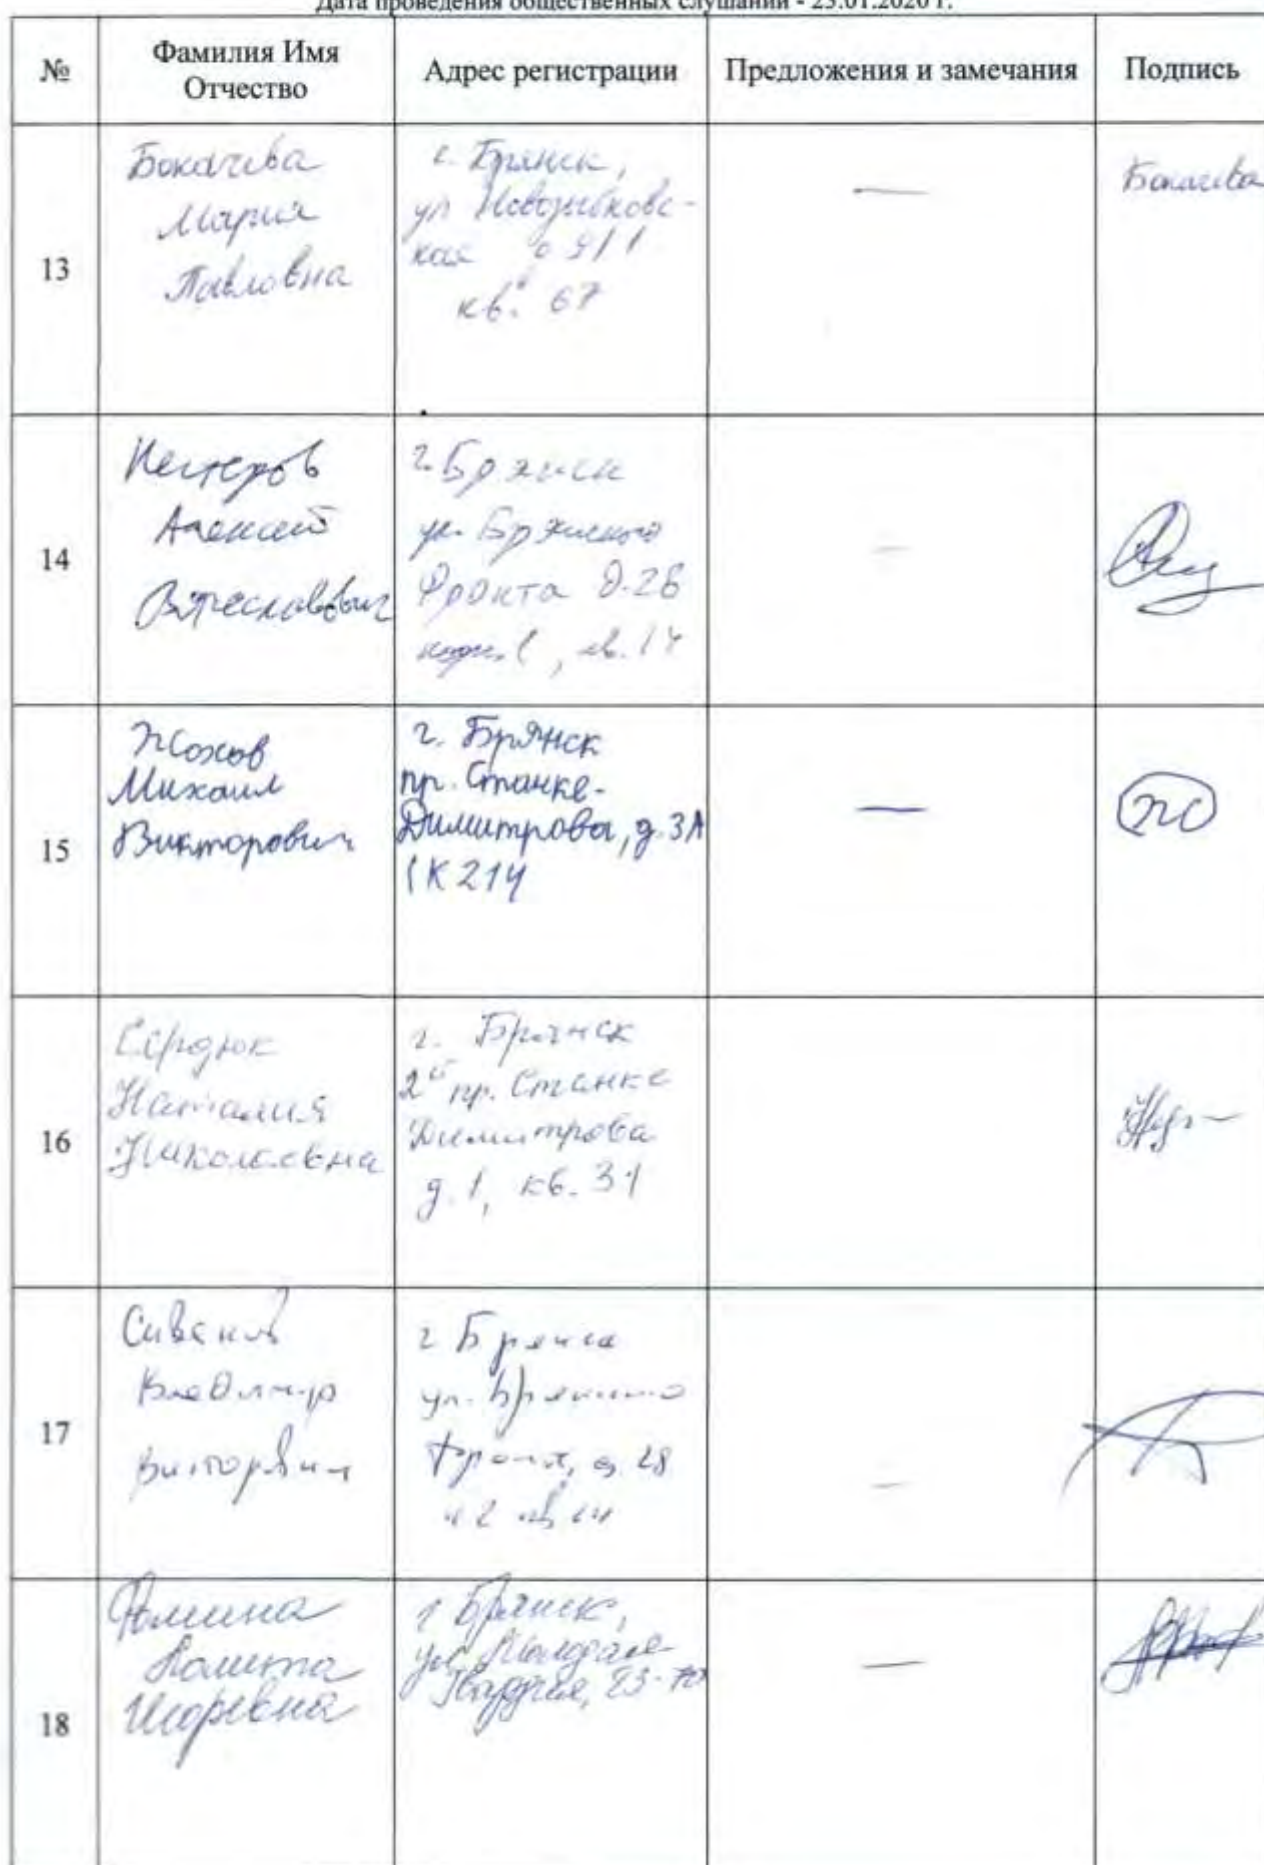 Дата проведения общественных слушаний - 23.01.2020 г.
№
Фамилия Имя
Отчество
Адрес регистрации
Предложения и замечания
Подпись
13
Бокачева
Мария
Павловна
г. Брянск,
ул Новозыбковс-
кая
кв. 67
—
Бокачева
14
Нестеров
Алексей
г. Брянск
ул. Брянского
Фронта д. 28
—
15
Жохов
Михаил
Викторович
г. Брянск
пр. Станке-
Димитрова, д. 3А
К 214
—
Ж
16
Сердюк
Наталия
Николаевна
г. Брянск
2й пр. Станке
Димитрова
д. 1, кв. 31
17
Владимир
Викторович
г Брянск
ул. Брянского
28
—
18
Лолита
Игоревна
г Брянск,
ул.
Гвардии, 23-70
—